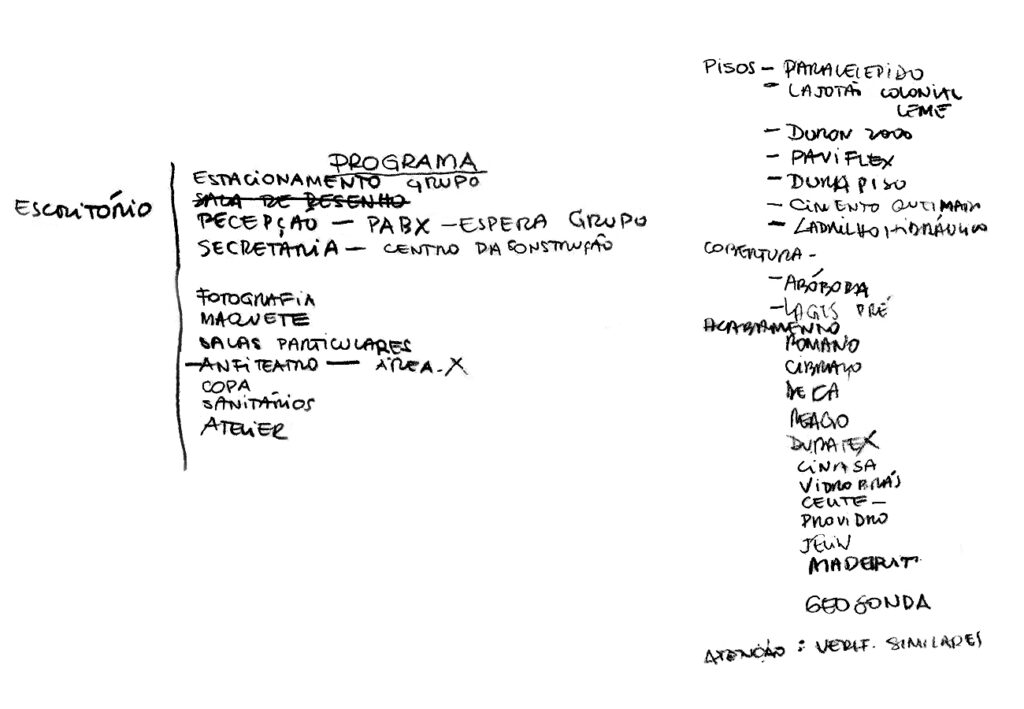 PROGRAMA
ESCRITÓRIO
ESTACIONAMENTO GRUPO
SALA DE DESENHO
RECEPÇÃO — PABX — ESPERA GRUPO
SECRETARIA — CENTRO DA CONSTRUÇÃO
FOTOGRAFIA
MAQUETE
SALAS PARTICULARES
— ANFITEATRO — ÁREA-X
COPA
SANITÁRIOS
ATELIER
PISOS — PARALELEPIDO
— LAJOTÃO COLONIAL
LEME
— DURON 2000
— PAVIFLEX
— DURAPISO
— CIMENTO QUEIMADO
— LADRILHO HIDRÁULICO
COBERTURA -
— ABÓBODA
— LAGES PRÉ
ACABAMENTO
ROMANO
CIBRAÇO
DECA
REAGO
DURATEX
CINASA
VIDROBRÁS
CELITE —
PROVIDRO
MADEIRIT
GEOSONDA
ATENÇÃO : VERIF. SIMILARES